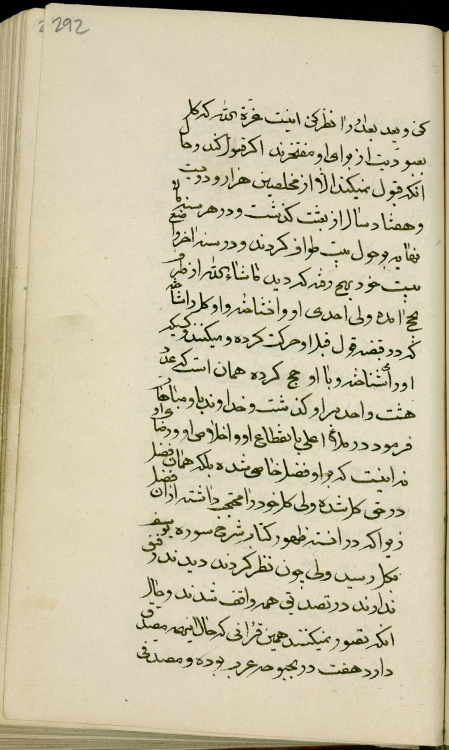 292
کنی و بعد بعد را نظر کنی اینست عزة الله که کل
بعبودیت از برای او مفتخرند اگر قبول کند و حال
آنکه قبول نمیکند الا از مخلصین هزار و دویست
و هفتاد سال از بعثت گذشت و در هر سنه
بحول بیت طواف کردند و در سنه آخر واضع
بیت خود بحج رفته که دید ما شاء الله از هر فرقه
بحج آمده ولی احدی او را نشناخته و او کل را شناخته
که در قبضه قول قبل او حرکت کرده و میکنند و کسیکه
او را شناخته و با او حج کرده همان است که عدد
هشت واحد بر او گذشت و خداوند باو مباهات
فرمود در ملأ اعلی بانقطاع او و اخلاص او در رضای او
نه اینست که بر او فضل خاصی شده بلکه همان فضل
در حق کل شده ولی کل خود را محتجب داشته از آن فضل
زیرا که در آن سنه ظهور کتاب شرح سوره یوسف
بکل رسید ولی چون نظر کردند دیدند رفیق
ندارند در تصدیق همه واقف شدند و حال
آنکه تصور نمیکنند همین قرآنی که حال اینهمه مصدق
دارد هفت سال در بحبوحه عرب بوده و مصدقی